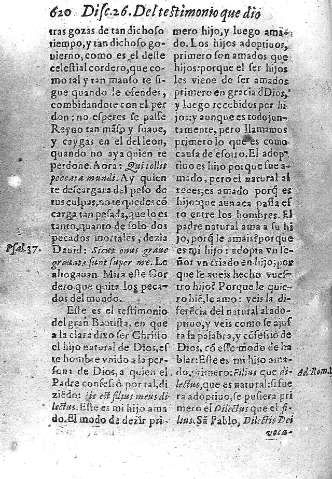 620 Disc. 26. Del testimonio que dio
tras gozas de tan dichoso
tiempo, y tan dichoso go-
uierno, como es el deste
celestial cordero, que co-
mo tal y tan manso te si-
gue quando le ofendes,
combidandote con el per
don; no esperes se passe
Reyno tan māso y suaue,
y caygas en el del leon,
quando no aya quien te
perdone. Aora: Qui tollis
peccata mundi. Ay quien
te descargara del peso de
tus culpas, no te quedes có
carga tan pesada, que lo es
tanto, quanto de solo dos
pecados mortales, dezia
Dauid: Sicut onus graue
Psal. 37.
grauatæ sunt super me. Le
ahogauan Mira este Cor
dero que quita los peca-
dos del mundo.
Este es el testimonio
del gran Bautista, en que
a la clara dixo ser Christo
el hijo natural de Dios, es
te hombre vnido a la per-
sona de Dios, a quien el
Padre confessò por tal, di
ziēdo: hic est filius meus di-
lectus. Este es mi hijo ama
do. El modo de dezir pri-
mero hijo, y luego ama-
do. Los hijos adoptiuos,
primero son amados que
hijos: porque el ser hijos
les viene de ser amados
primero en gracia d̄ Dios,
y luego recebidos por hi-
jos: y aunque es todo jun-
tamente, pero llamamos
primero lo que es como
causa de estotro. El adop-
tiuo es hijo porque fue a-
mado, pero el natural al
reues, es amado porq̄ es
hijo: que aun acà passa es
to entre los hombres. El
padre natural ama a su hi
jo, porq̄ le amais? porque
es mi hijo: adopta vn se-
ñor vn criado en hijo, por
que le aueis hecho vues-
tro hijo? Porque le quie-
ro biē, le amo: veis la di-
ferēcia del natural al ado-
ptiuo, y veis como se ajus
ta la palabra, y cōfessiō de
Dios, có este modo de ha
blar: Este es mi hijo ama-
do, primero: Filius que di-
Ad Rom. 1
lectus, que es natural: si fue
ra adoptiuo se pusiera pri
mero el Dilectus que el fi-
lius. Sā Pablo, Dilectis Dei
voca-